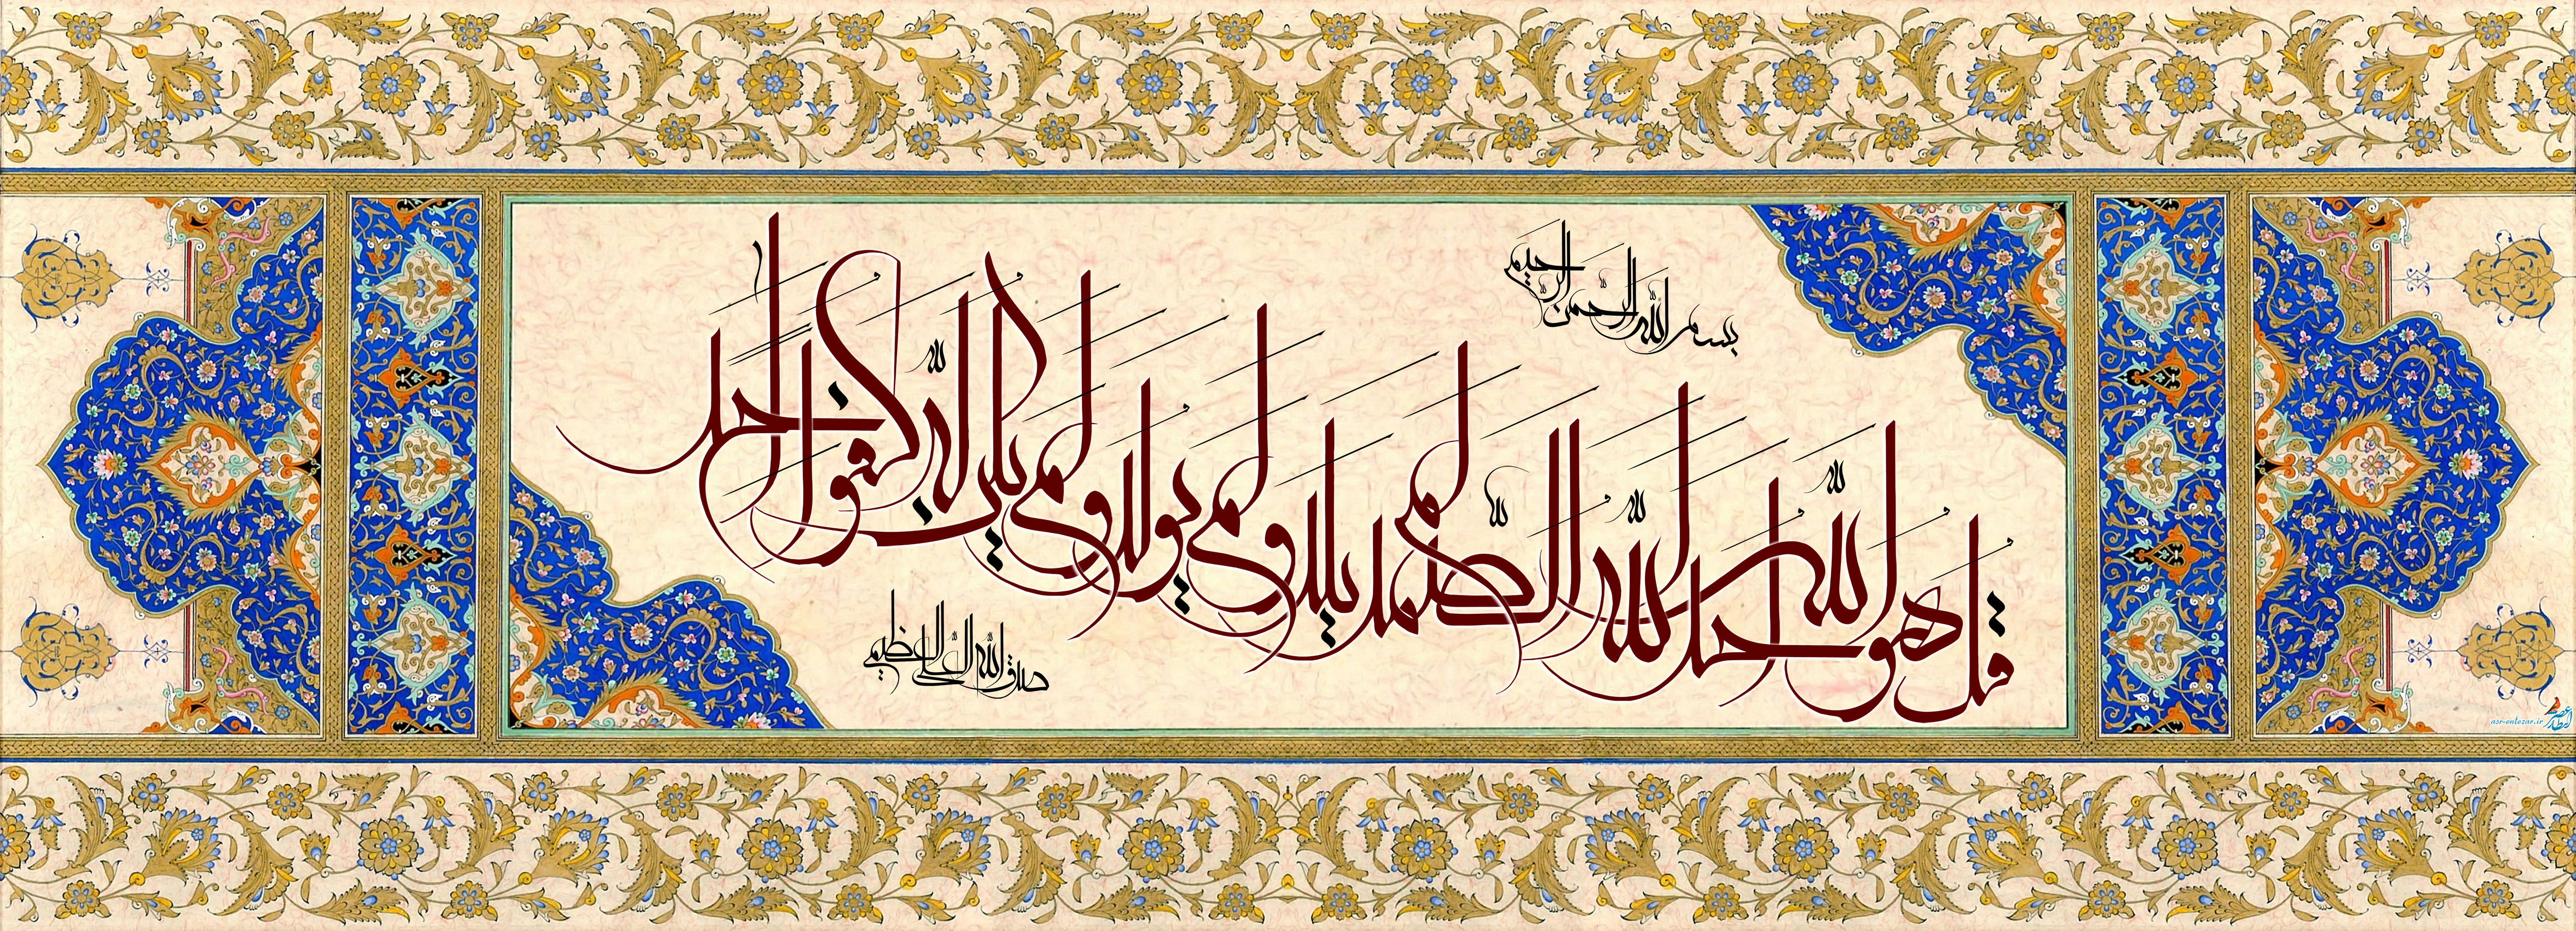 بسم الله الرحمن الرحیم
قل هو الله احد الله الصمد لم یلد و لم یولد و لم یکن له کفوا احد
صدق الله العلی العظیم
عصر انتظار
asr-entezar.ir